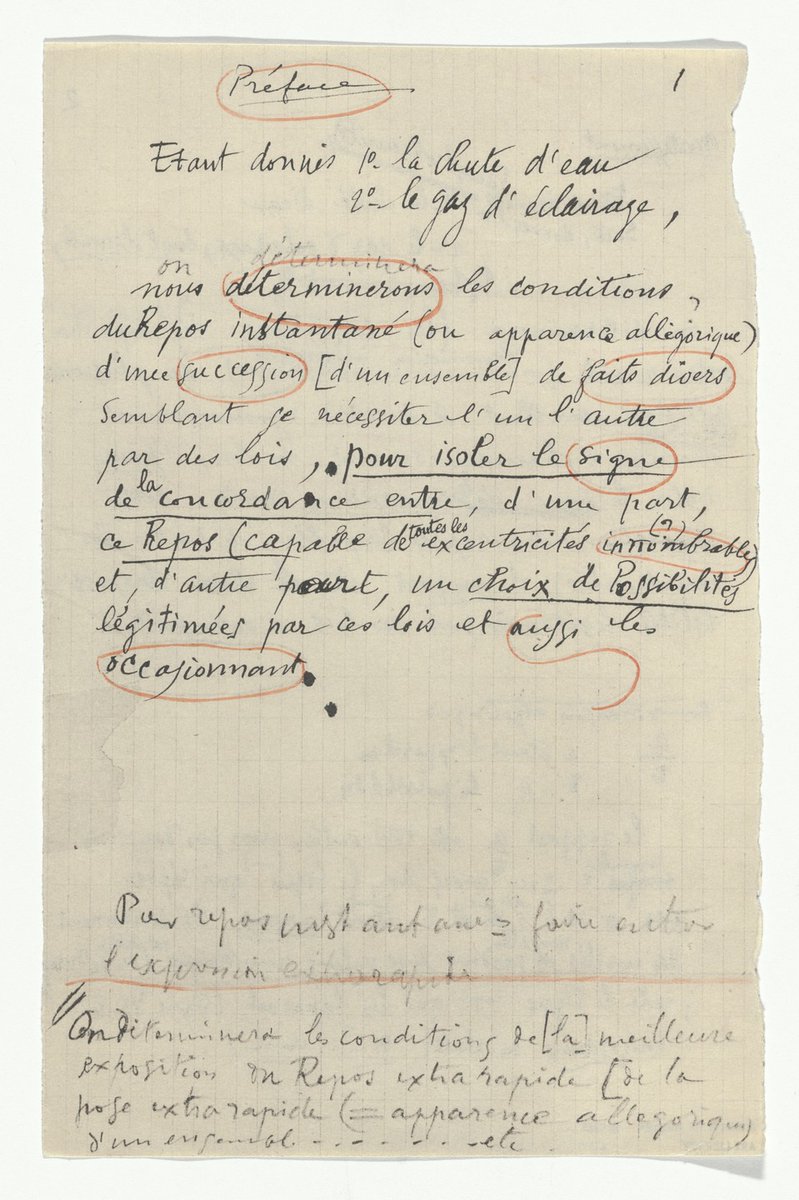 Préface
1
Etant donnés 1º. la chute d'eau
2º. le gaz d'éclairage,
on déterminera
nous déterminerons les conditions
du Repos instantané (ou apparence allégorique)
d'une succession [d'un ensemble] de faits divers
semblant se nécessiter l'un l'autre
par des lois, pour isoler le signe
de la concordance entre, d'une part,
ce Repos (capable de toutes les excentricités innombrables (?))
et, d'autre part, un choix de Possibilités
légitimées par ces lois et aussi les
occasionnant.
Pour repos instantané = faire entrer
l'expression extrarapide
On déterminera les conditions de [la] meilleure
exposition du Repos extra rapide [de la
pose extra rapide (= apparence allégorique)
d'un ensembl. - - - - - - etc